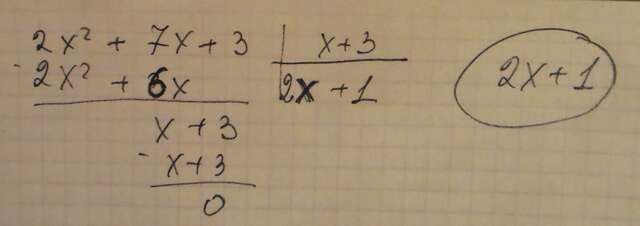 2x² + 7x + 3 | x + 3
- 2x² + 6x | 2x + 1
x + 3
- x + 3
0
2x + 1